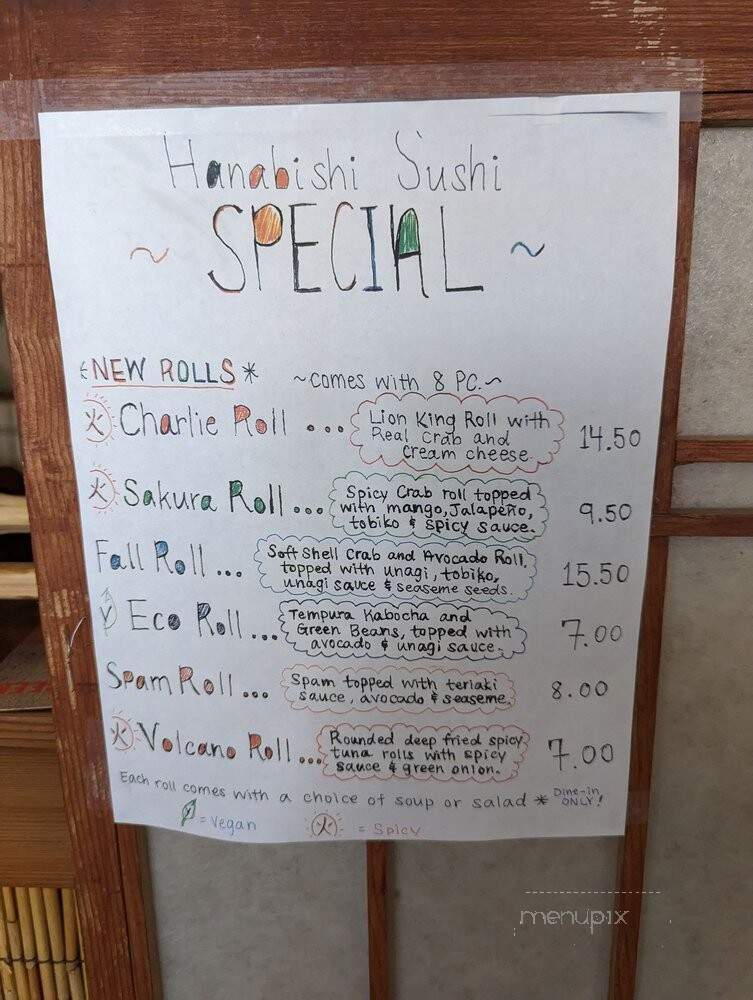 Hanabishi Sushi
~ SPECIAL ~
*NEW ROLLS* ~comes with 8 PC.~
火 Charlie Roll ... Lion King Roll with 14.50
Real Crab and
cream cheese.
火 Sakura Roll... Spicy Crab roll topped 9.50
with mango, Jalapeño,
tobiko & spicy sauce.
Fall Roll ... Soft Shell Crab and Avocado Roll, 15.50
topped with unagi, tobiko,
unagi sauce & seaseme seeds.
V Eco Roll ... Tempura Kabocha and 7.00
Green Beans, topped with
avocado & unagi sauce.
Spam Roll ... Spam topped with teriaki 8.00
sauce, avocado & seaseme.
火 Volcano Roll ... Rounded deep fried spicy 7.00
tuna rolls with spicy
sauce & green onion.
Each roll comes with a choice of soup or salad * Dine-in
ONLY!
V = Vegan 火 = Spicy
menupix